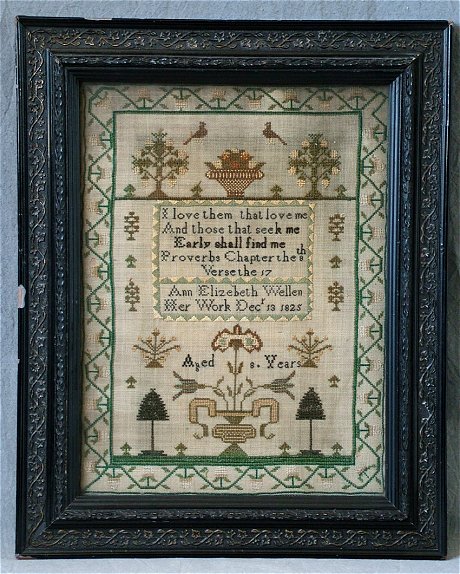 I love them that love me
And those that seek me
Early shall find me
Proverbs Chapter the 8th
Verse the 17
Ann Elizebeth Wellen
Her Work Decr 13 1825
Aged 8. Years